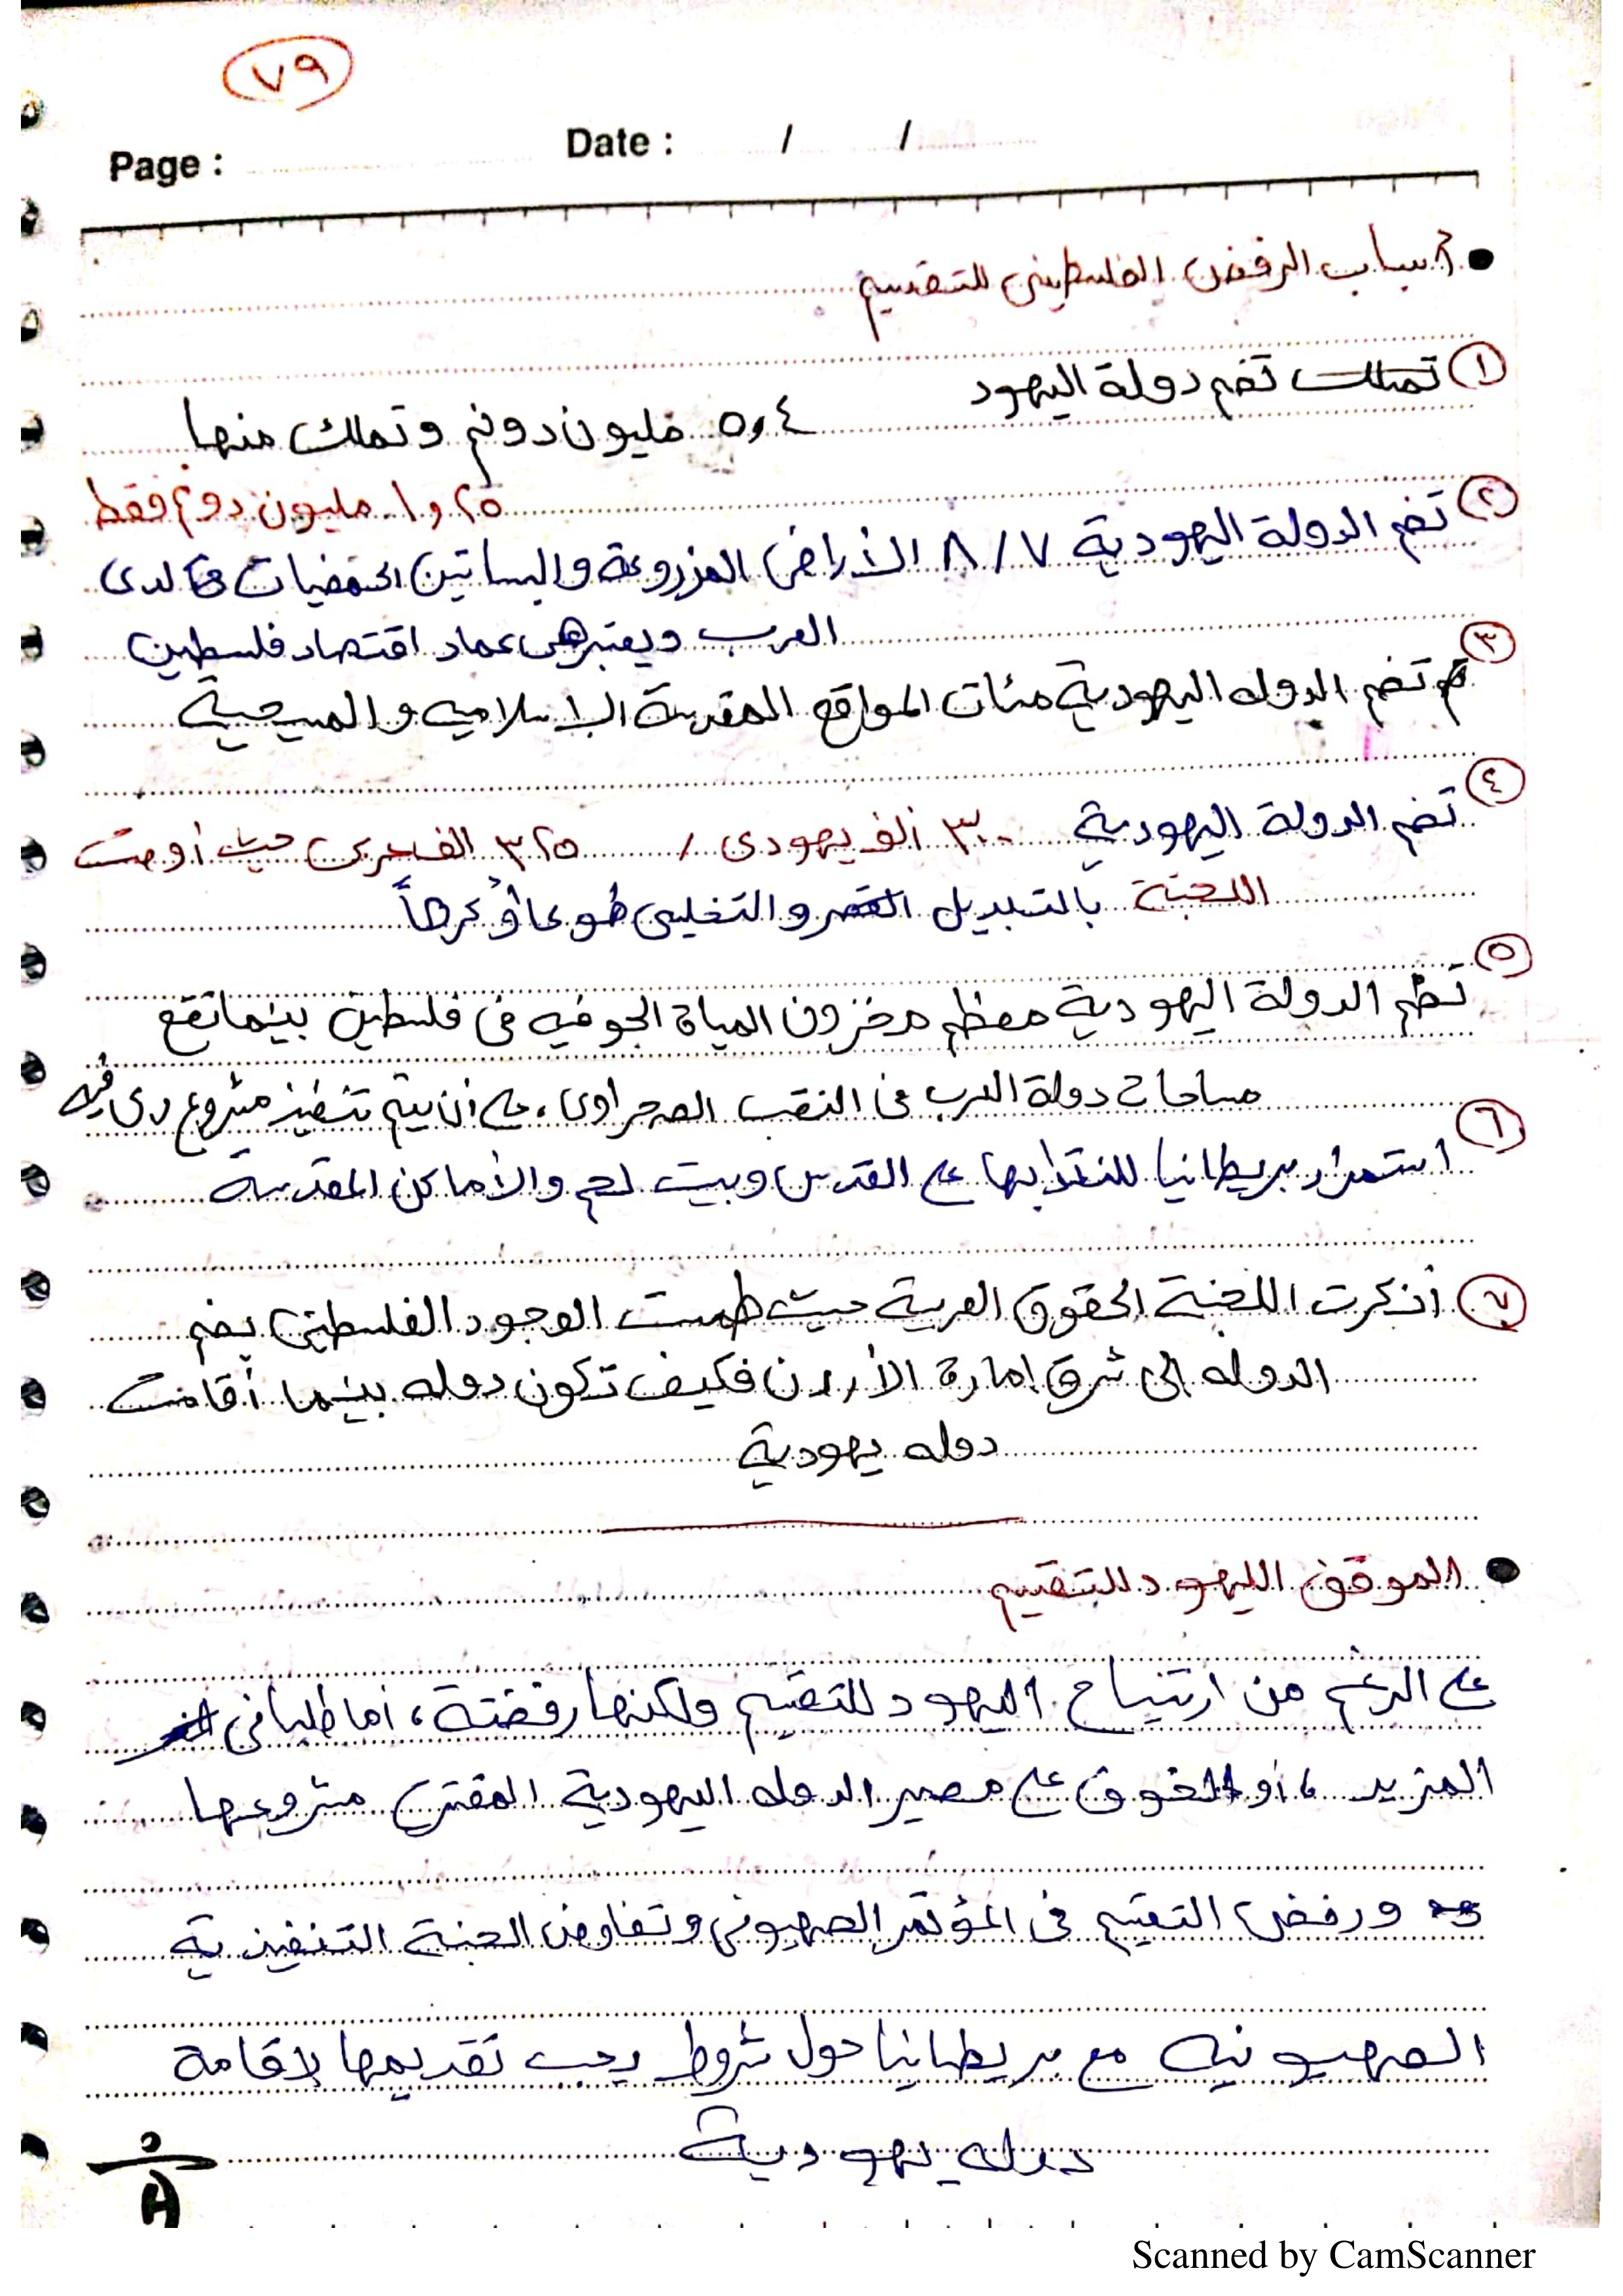 ٧٩
Page :
Date :      /      /
• أسباب الرفض الفلسطيني للتقسيم
① تضم دولة اليهود
٥,٤ مليون دونم وتملك منها
١,٢٥ مليون دونم فقط
② تضم الدولة اليهودية ٨/٧ الأراضي المزروعة والبساتين الحمضيات لدى
العرب ويعتبر هي عماد اقتصاد فلسطين
③ تضم الدوله اليهودية مئات المواقع المقدسة الاسلاميه والمسيحية
④ تضم الدولة اليهودية ٣٠٠ ألف يهودى / ٣٢٥ الف عربى حيث أوصت
اللجنة بالتبديل والتخلي طوعا أو كرهاً
⑤ تظم الدولة اليهودية معظم مخزون المياة الجوفيه في فلسطين بينما تقع
مساحات دولة العرب في النقب الصحراوى، على أن يتم تنفيذ مشروع رى فيه
⑥ استمرار بريطانيا للنتدابها على القدس وبيت لحم والأماكن المقدسة
⑦ أنكرت اللجنة الحقوق العربية حيث طمست الوجود الفلسطيني بضم
الدوله إلى شرق إمارة الأردن فكيف تكون دوله بينما أقامت
دوله يهودية
• الموقف اليهود للتقسيم
على الرغم من ارتياح اليهود للتقسيم ولكنها رفضتة، أما طلبا في
المزيد، أو الخوف على مصير الدوله اليهودية المقترح مشروعها
ورفض التقسيم في المؤتمر الصهيوني وتفاوض الجنة التنفيذية
الصهيونيه مع بريطانيا حول شروط يجب تقديمها لإقامة
دوله يهودية
Scanned by CamScanner